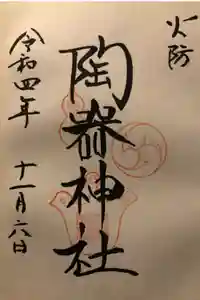 火防
陶器神社
令和四年
十一月六日